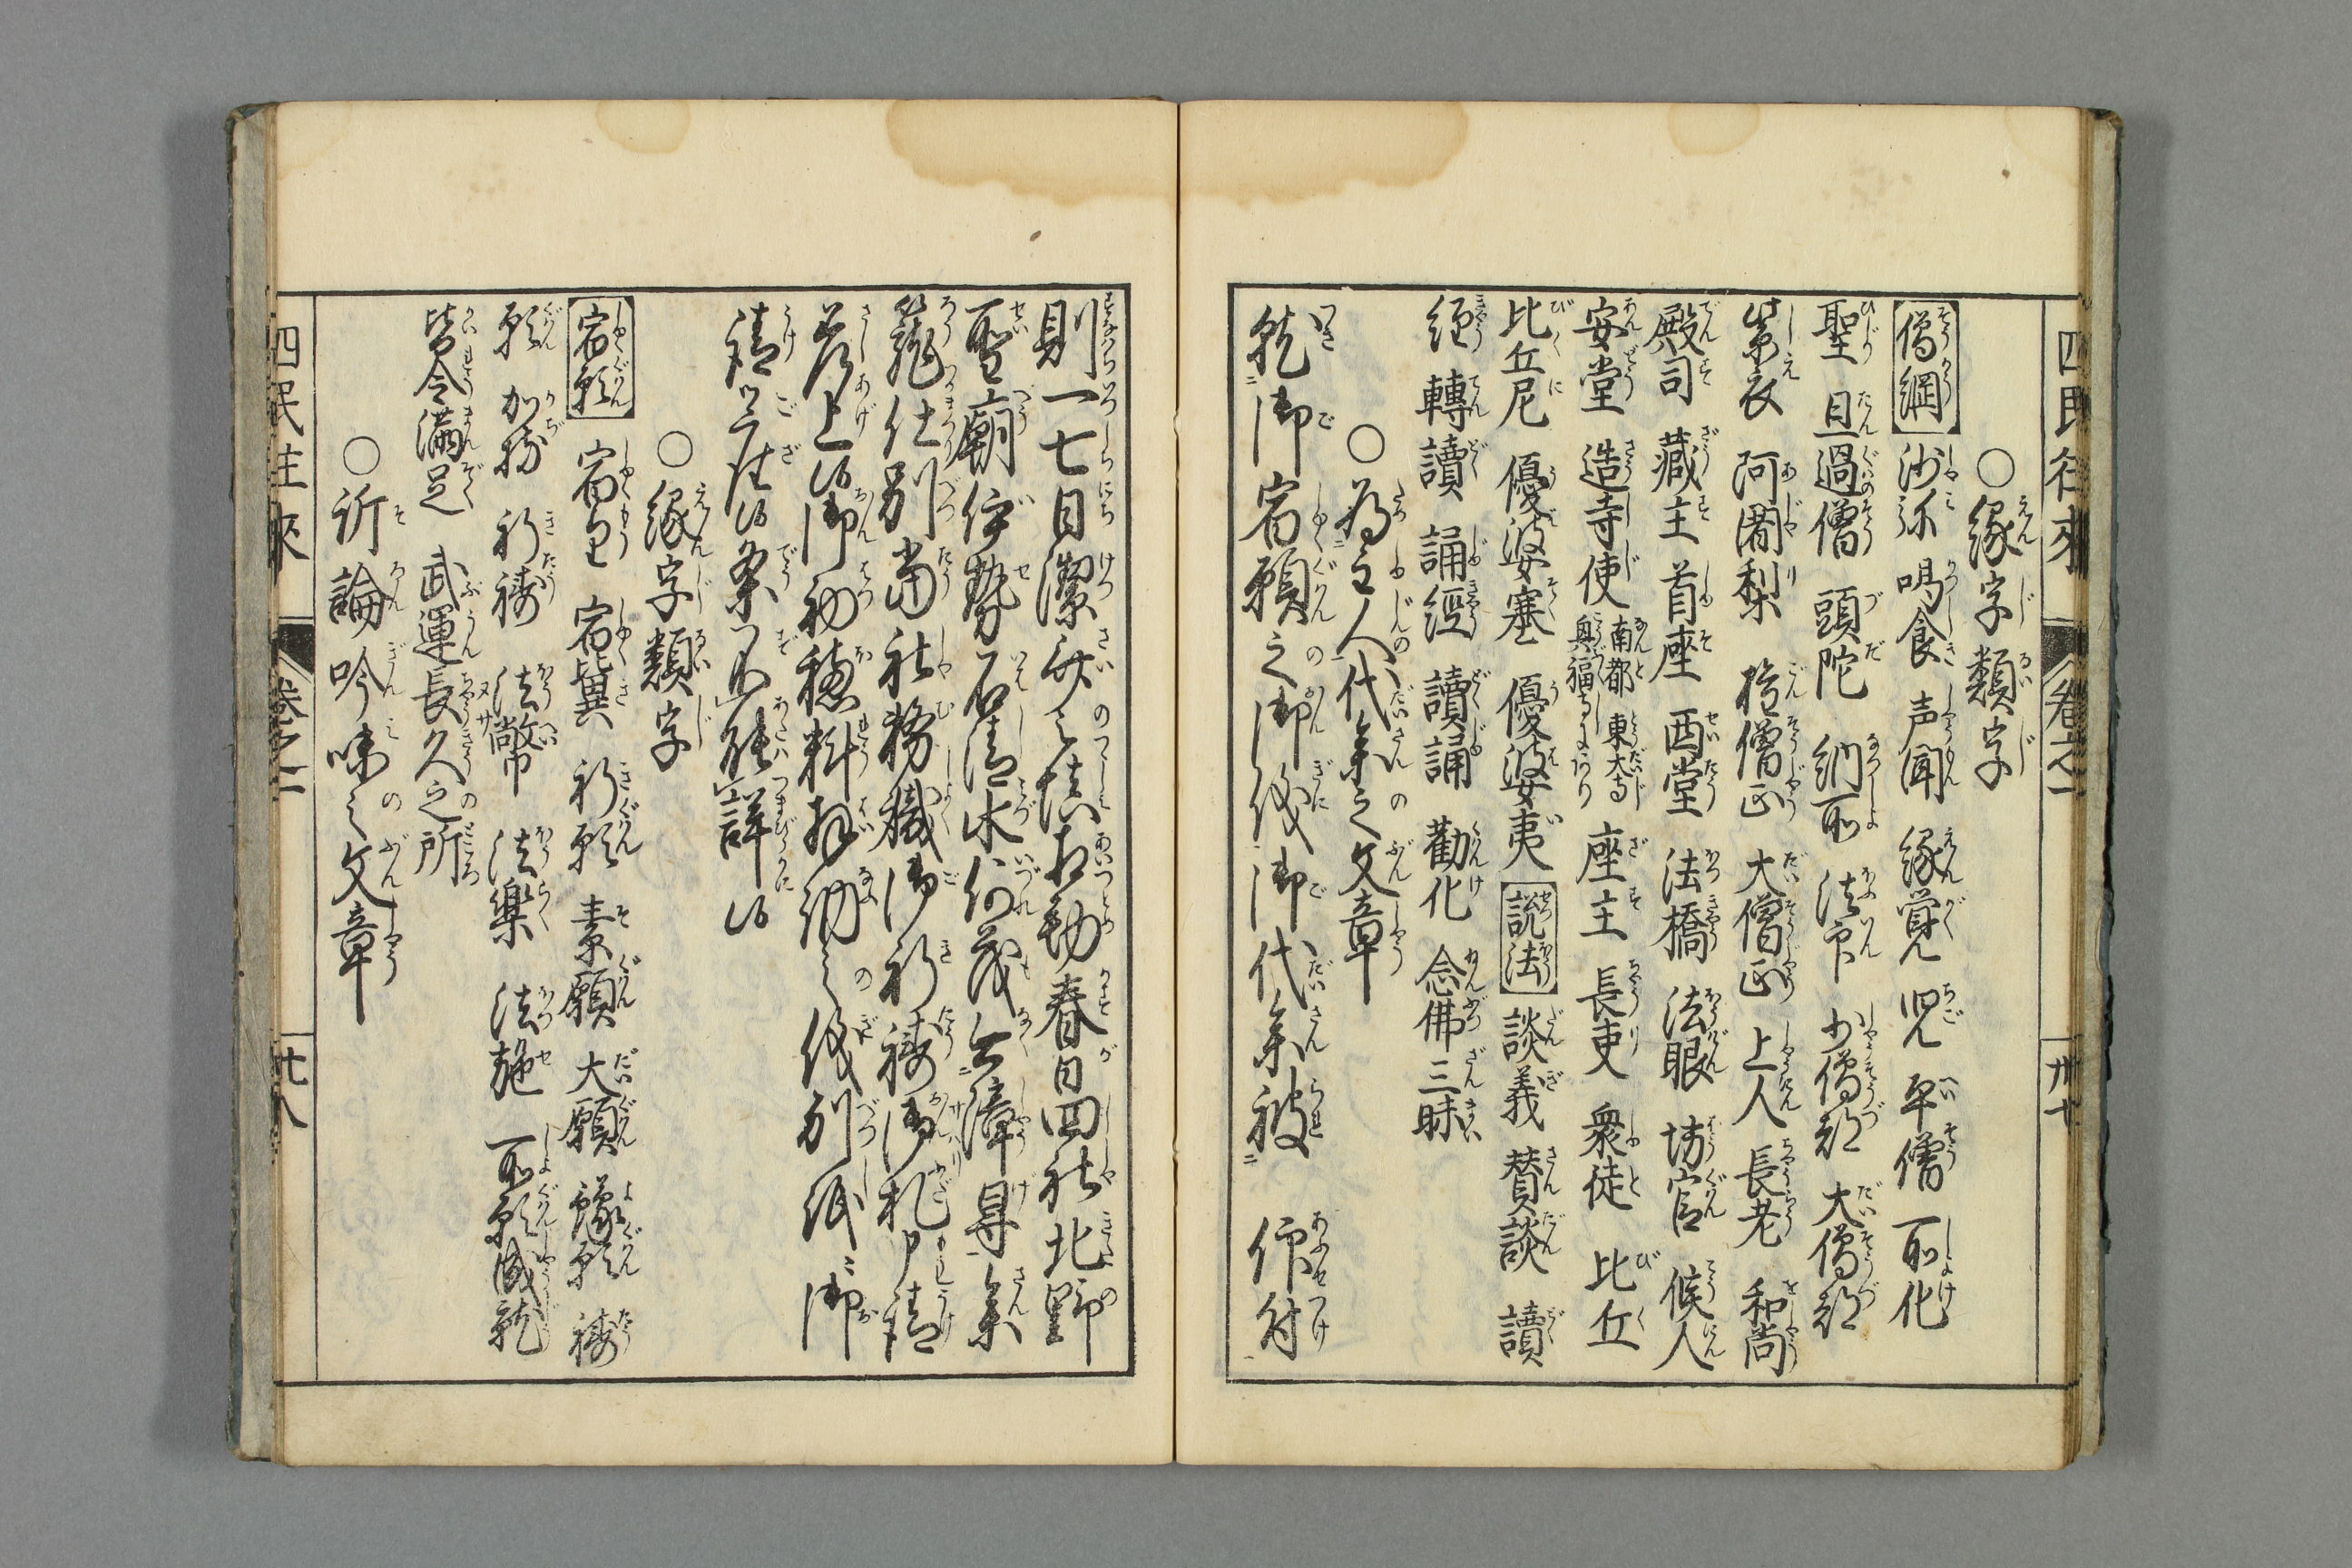 四民往來 卷之二 卅七
○縁字類字
僧綱 沙弥 喝食 声聞 縁覚 児 平僧 所化
聖 旦過僧 頭陀 納所 法印 少僧都 大僧都
紫衣 阿闍梨 権僧正 大僧正 上人 長老 和尚
殿司 蔵主 首座 西堂 法橋 法眼 坊官 候人
安堂 造寺使 南都 東大寺 興福寺にあり 座主 長吏 衆徒 比丘
比丘尼 優婆塞 優婆夷 説法 談義 賛談 讀
經 轉讀 誦經 讀誦 勸化 念佛三昧
○為主人代参之文章
就御宿願之御儀御代参被 仰付
則一七日潔斎之慎相勤春日四社北野
聖廟伊勢石清水何茂無障导参
籠仕別當社務職御祈禱御札申請
差上候御初穂料相納之儀別紙ニ御
請御座候条不能詳候
○縁字類字
宿願 宿望 宿冀 祈願 素願 大願 豫願 禱
願 加持 祈禱 法幣 法樂 法施 所願成就
皆令滿足 武運長久之所
○訴論吟味之文章
四民往來 卷之二 卅八